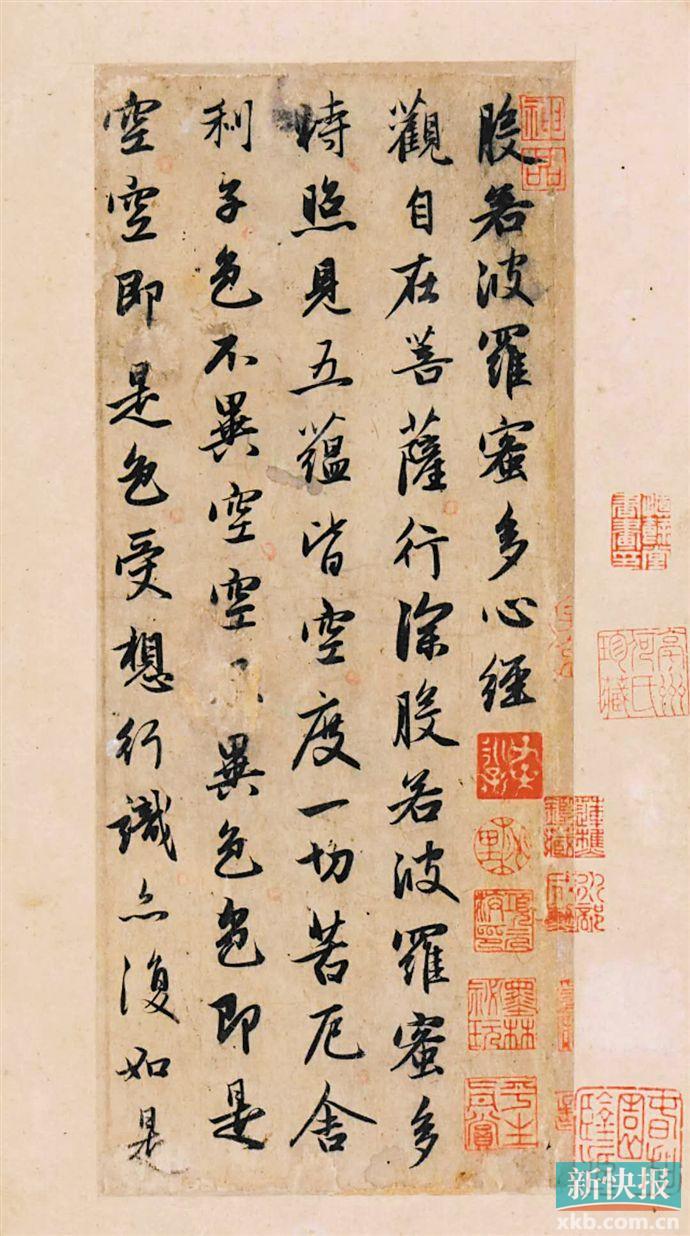 般若波羅蜜多心經
觀自在菩薩行深般若波羅蜜多
時照見五蘊皆空度一切苦厄舍
利子色不異空空異色色即是
空空即是色受想行識亦復如是
神品
墨林祕玩
平生真賞
新快报
xkb.com.cn